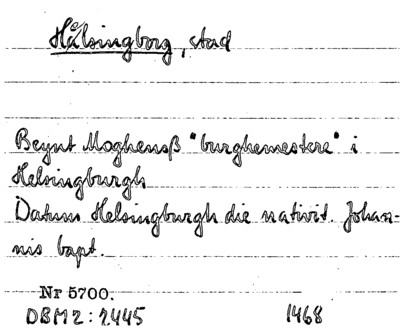 Hälsingborg, stad
Beynt Moghenß "burghemestere" i
Helsingburgh
Datum Helsingburgh die nativit. Johan-
nis bapt.
Nr 5700.
DBM2:2445 1468